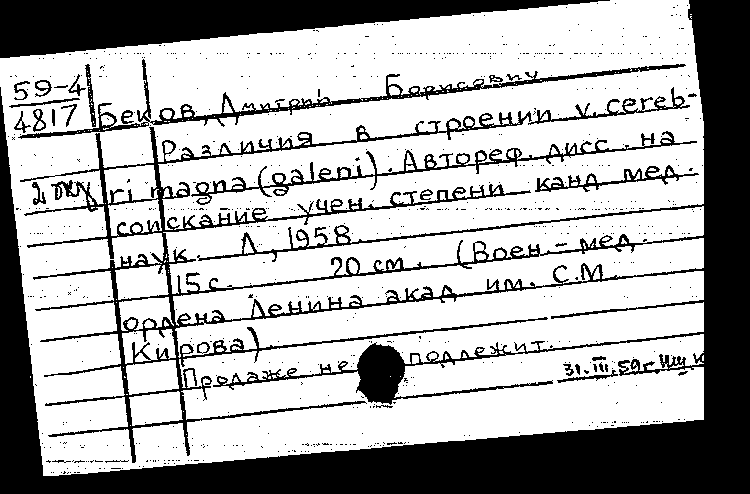 59-4
4817
Беков, Дмитрий Борисович
Различия в строении v. cereb-
2 экз
ri magna (galeni). Автореф. дисс. на
соискание учен. степени канд мед.
наук. Л, 1958.
15 с. 20 см. (Воен.-мед.
ордена Ленина акад им. С.М.
Кирова).
Продаже не подлежит.
31.III.59г.